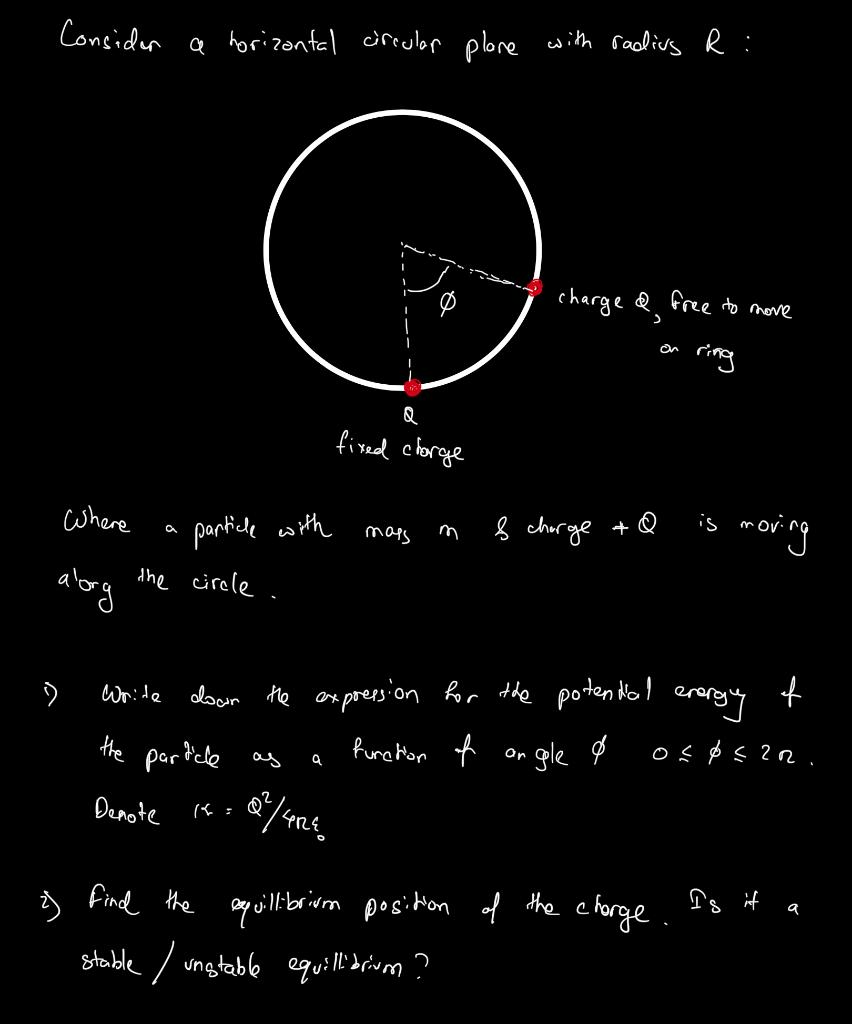 Consider a horizontal circular plane with radius R :
ϕ
charge Q, free to move
on ring
Q
fixed charge
Where a particle with mass m & charge + Q is moving
along the circle .
1) Write down the expression for the potential energy of
the particle as a function of angle ϕ 0 ≤ ϕ ≤ 2π .
Denote K = Q²/4πε₀
2) Find the equillibrium position of the charge. Is it a
stable / unstable equillibrium ?